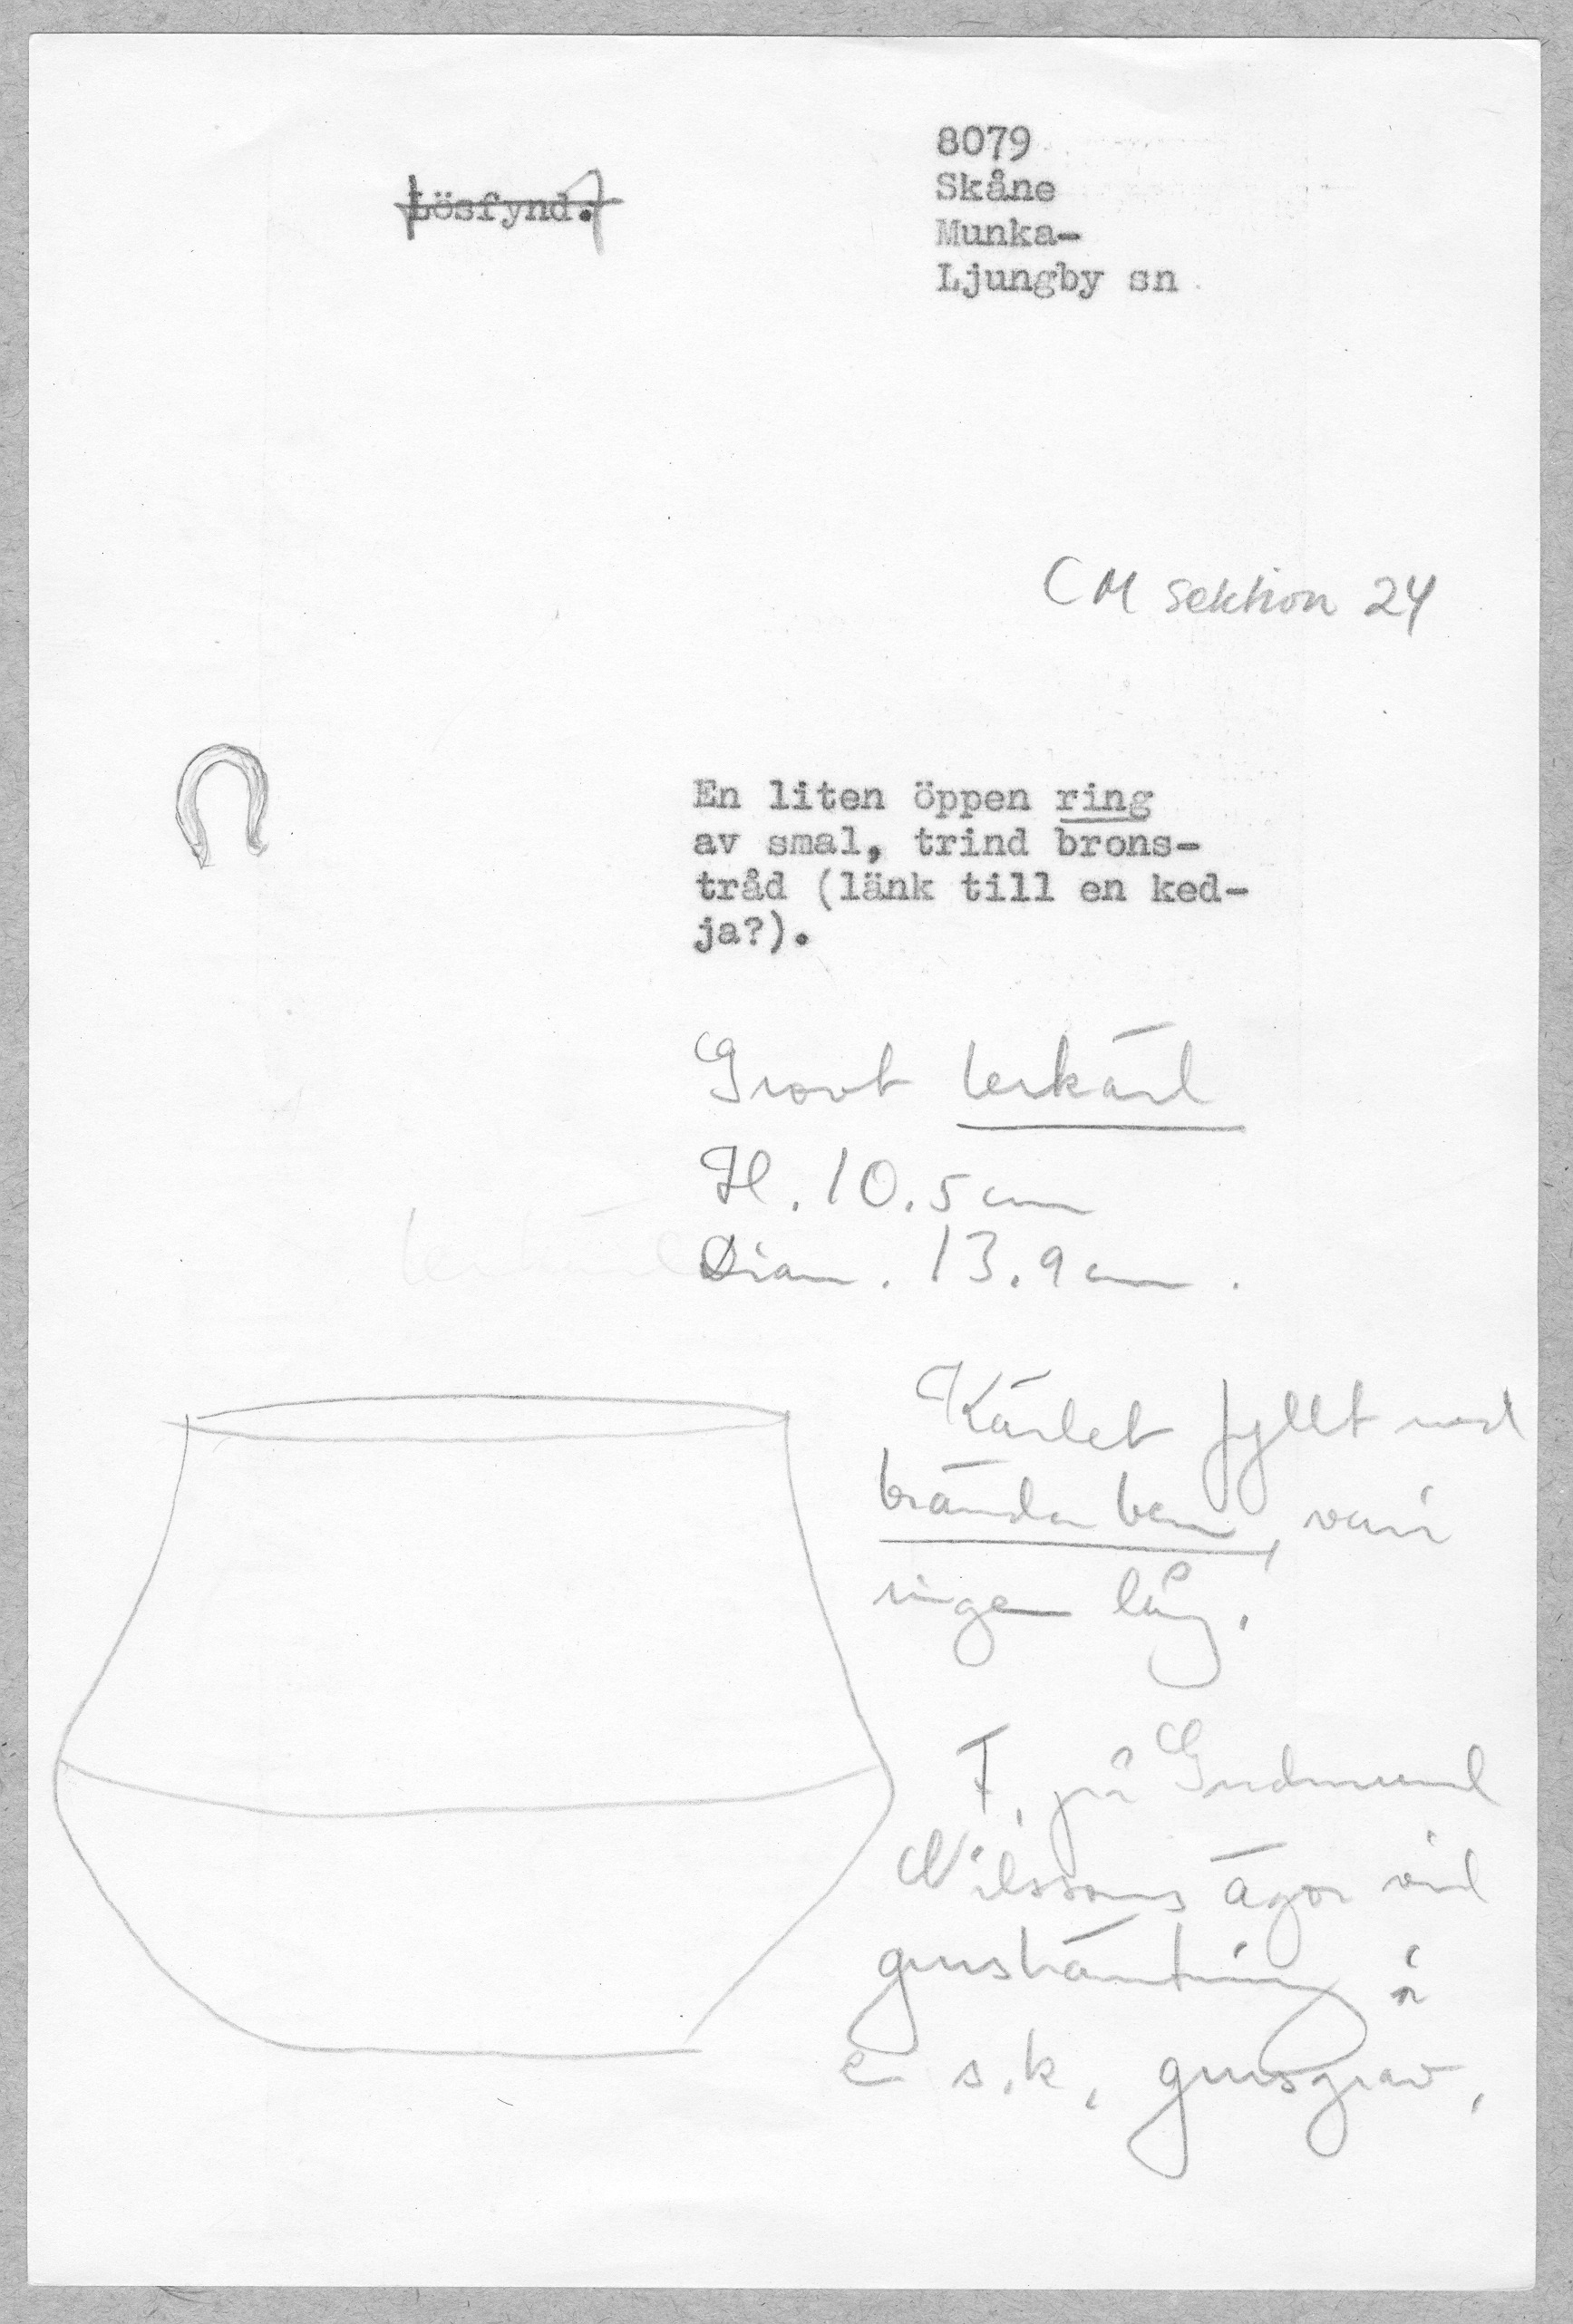 Lösfynd.
8079
Skåne
Munka-
Ljungby sn
CM sektion 24
En liten öppen ring
av smal, trind brons-
tråd (länk till en ked-
ja?).
Grovt lerkärl
H. 10.5 cm
lerkärl
Diam. 13.9 cm.
Kärlet fyllt med
brända ben, vari
ringen låg.
F. på Gudmund
Nilssons ägor vid
grushämtning i
en s.k. grusgrav.